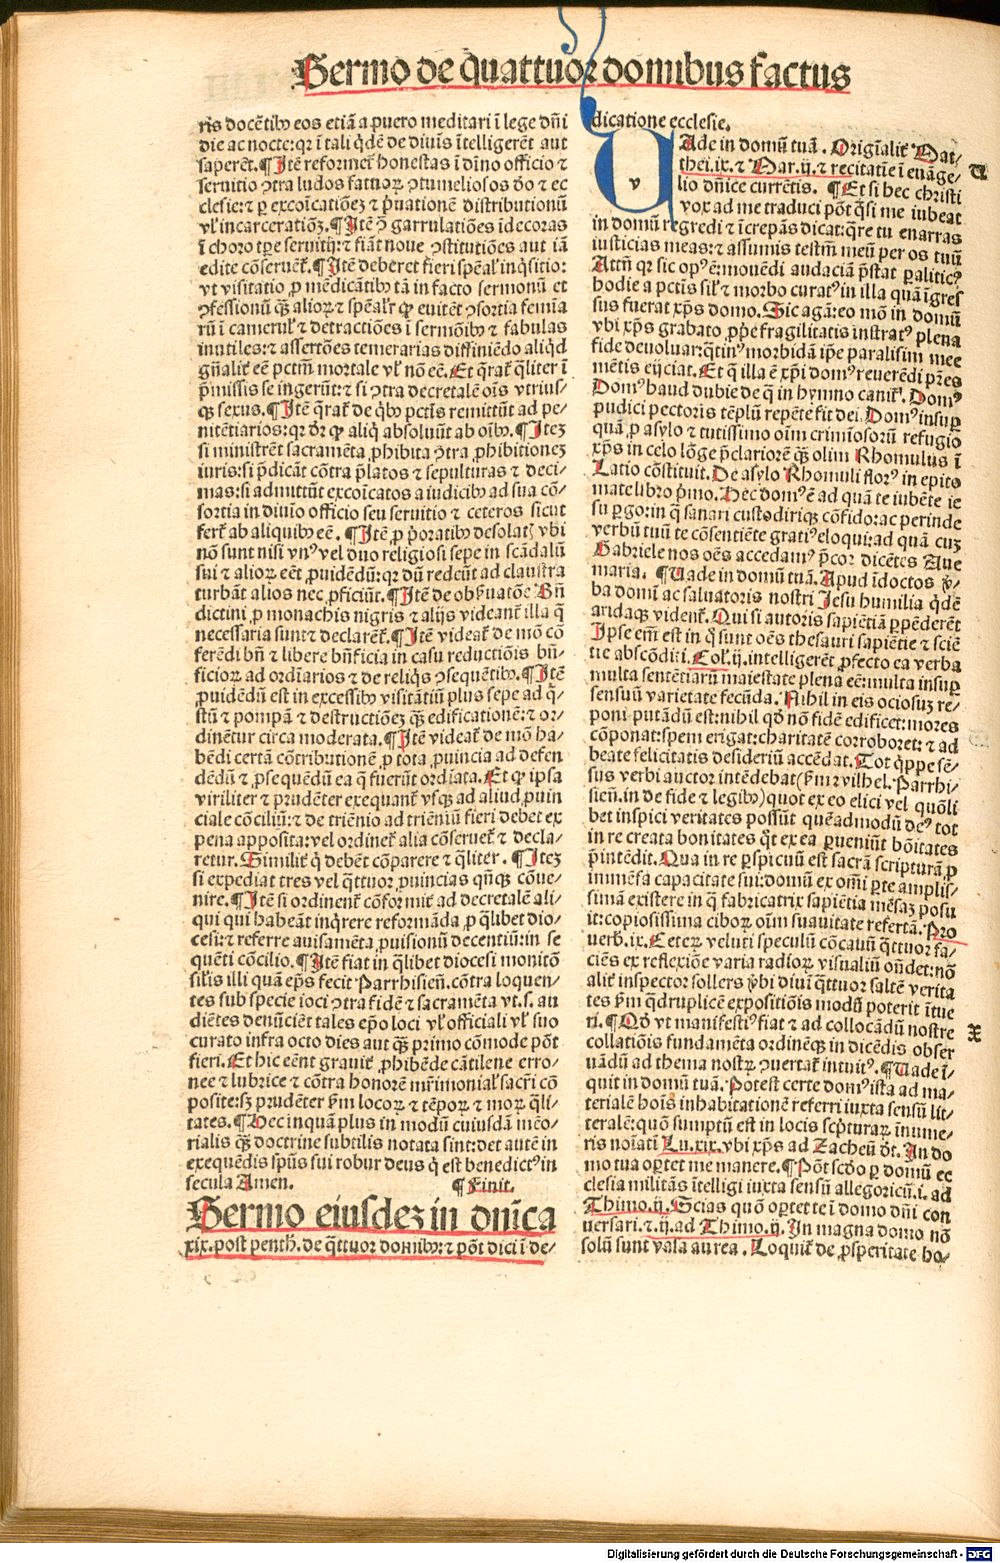 Sermo de quattuor domibus factus
ris docẽtibꝰ eos etiã a puero meditari ĩ lege dñi
die ac nocte: qꝛ ĩ tali q̃dẽ de diuĩs ĩtelligerẽt aut
saperẽt. ¶ Itẽ reformet᷑ honestas ĩ dĩno officio ⁊
seruitio ꝯtra ludos fatuoꝝ ꝯtumeliosos dõ ⁊ ec
clesie: ⁊ ꝑ excoĩcatiõeʒ ⁊ p̃uationẽ distributionũ
vl̕ incarceratiõʒ. ¶ Itẽ ꝯ̃ garrulatiões ĩdecoras
ĩ choro tꝑe seruitij: ⁊ fiãt noue ꝯstitutiões aut iã
edite cõseruẽt᷑. ¶ Itẽ deberet fieri spẽal̕ inq̃sitio:
vt visitatio ꝓ mẽdicãtibꝰ tã in facto sermonũ et
ꝯfessionũ qʒ̃ alioꝝ ⁊ spẽal̕r ꝙ euitẽt ꝯsortia femĩa
rũ ĩ camerul̕ ⁊ detractiões ĩ sermõibꝰ ⁊ fabulas
inutiles: ⁊ assertões temerarias diffiniẽdo aliq̃d
gñalit᷑ eẽ pctm̃ mortale vl̕ nõ eẽ. Et q̃rat᷑ q̃liter ĩ
p̃missis se ingerũt: ⁊ si ꝯtra decretalẽ oĩs vtrius⸗
qʒ sexus. ¶ Itẽ q̃rat᷑ de q̃bꝰ pctĩs remittũt ad pe⸗
nitẽtiarios: qꝛ dr̃ ꝙ aliq̃ absoluũt ab oĩbꝰ. ¶ Iteʒ
si ministrẽt sacramẽta ꝓhibita ꝯtra ꝓhibitioneʒ
iuris: si p̃dicãt cõtra p̃latos ⁊ sepulturas ⁊ deci⸗
mas: si admittũt excoĩcatos a iudicibꝰ ad sua cõ⸗
sortia in diuio officio seu seruitio ⁊ ceteros sicut
fert᷑ ab aliquibꝰ eẽ. ¶ Itẽ ꝓ p̃oratibꝰ desolat᷑ vbi
nõ sunt nisi vnꝰ vel duo religiosi sepe in scãdalũ
sui ⁊ alioꝝ eẽt ꝓuidẽdũ: qꝛ dũ redeũt ad claustra
turbãt alios nec ꝓficiũt. ¶ Itẽ de obẜuatõe Bñ
dictini ꝓ monachis nigris ⁊ alijs videant᷑ illa q̃
necessaria sunt ⁊ declarẽt᷑. ¶ Itẽ videat᷑ de mõ cõ
ferẽdi bñ ⁊ libere bñficia in casu reductiõis bñ⸗
ficioꝝ ad ordĩarios ⁊ de reliq̃s ꝯsequẽtibꝰ. ¶ Itẽ
ꝓuidẽdũ est in excessibꝰ visitãtiũ plus sepe ad q̃⸗
stũ ⁊ pompã ⁊ destructiõeʒ qʒ̃ edificationẽ: ⁊ or⸗
dinẽtur circa moderata. ¶ Itẽ videat᷑ de mõ ha⸗
bẽdi certã cõtributionẽ ꝓ tota ꝓuincia ad defen
dẽdũ ⁊ ꝓsequẽdũ ea q̃ fuerũt ordĩata. Et ꝙ ipsa
viriliter ⁊ prudẽter exequant᷑ vsqʒ ad aliud ꝓuin
ciale cõciliũ: ⁊ de triẽnio ad triẽniũ fieri debet ex
pena apposita: vel ordinet᷑ alia cõseruet᷑ ⁊ decla⸗
retur. Similit᷑ q̃ debẽt cõparere ⁊ q̃liter. ¶ Iteʒ
si expediat tres vel q̃ttuor ꝓuincias qũqʒ cõue⸗
nire. ¶ Itẽ si ordinent᷑ cõformit᷑ ad decretalẽ ali⸗
qui qui habeãt inq̃rere reformãda ꝓ q̃libet dio⸗
cesi: ⁊ referre auisamẽta ꝓuisionũ decentiũ: in se
quẽti cõcilio. ¶ Itẽ fiat in q̃libet diocesi monitõ
sil̕is illi quã ep̃s fecit Parrhisieñ. cõtra loquen⸗
tes sub specie ioci ꝯtra fidẽ ⁊ sacramẽta vt. s. au
diẽtes denũciẽt tales ep̃o loci vl̕ officiali vl̕ suo
curato infra octo dies aut qʒ̃ primo cõmode põt
fieri. Et hic eẽnt grauit᷑ ꝓhibẽde cãtilene erro⸗
nee ⁊ lubrice ⁊ cõtra honorẽ mr̃imonial̕ sacr̃i cõ
posite: sʒ prudẽter ẜm locoꝝ ⁊ tẽpoꝝ ⁊ moꝝ q̃li⸗
tates. ¶ Hec inquam plus in modũ cuiusdã mẽo⸗
rialis qʒ̃ doctrine subtilis notata sint: det autẽ in
exequẽdis sp̃us sui robur deus q̃ est benedictꝰ in
secula Amen. ¶ Finit.
Sermo eiusdeʒ in dñica
xix. post penth. de q̃ttuor domibꝰ: ⁊ põt dici ĩ de⸗
dicatione ecclesie.
v
VAde in domũ tuã. Origĩalit᷑ Mat⸗
thei. ix. ⁊ Mar. ij. ⁊ recitatĩe ĩ euãge⸗
lio dñice currẽtis. ¶ Et si hec christi
vox ad me traduci põt q̃si me iubeat
in domũ regredi ⁊ ĩcrepãs dicat: q̃re tu enarras
iusticias meas: ⁊ assumis testm̃ meũ per os tuũ
Attñ qꝛ sic opꝰ ẽ: mouẽdi audaciã p̃stat ꝑaliticꝰ
hodie a pctis sil̕ ⁊ morbo curatꝰ in illa quã ĩgres
sus fuerat xp̃s domo. Sic agã: eo mõ in domũ
vbi xp̃s grabato ꝓp̃e fragilitatis instratꝰ plena
fide deuoluar: q̃tinꝰ morbidã ip̃e paralisim mee
mẽtis eijciat. Et q̃ illa ẽ xp̃i domꝰ reuerẽdi pr̃es
Domꝰ haud dubie de q̃ in hymno canit᷑. Domꝰ
pudici pectoris tẽplũ repẽte fit dei. Domꝰ insuꝑ
quã ꝓ asylo ⁊ tutissimo oĩm crimĩosorũ refugio
xp̃s in celo lõge p̃clariorẽ qʒ̃ olim Rhomulus ĩ
Latio cõstituit. De asylo Rhomuli florꝰ in epito
mate libro p̃mo. Hec domꝰ ẽ ad quã te iubẽte ie
su ꝑgo: in q̃ sanari custodiriqʒ cõfido: ac perinde
verbũ tuũ te cõsentiẽte gratiꝰ eloqui: ad quã cuʒ
Gabriele nos oẽs accedamꝰ p̃cor dicẽtes Aue
maria. ¶ Vade in domũ tuã. Apud ĩdoctos ṽ⸗
ba domĩ ac saluatoris nostri Jesu humilia q̃dẽ
aridaqʒ vident᷑. Qui si autoris sapiẽtiã ꝑpẽderẽt
Ipse em̃ est in q̃ sunt oẽs thesauri sapiẽtie ⁊ sciẽ
tie abscõdi: i. Col̕. ij. intelligerẽt ꝓfecto ea verba
multa sentẽtiarũ maiestate plena eẽ: multa insuꝑ
sensuũ varietate fecũda. Nihil in eis ociosuʒ re⸗
poni putãdũ est: nihil qd̕ nõ fidẽ edificet: mores
cõponat: spem erigat: charitatẽ corroboret: ⁊ ad
beate felicitatis desideriũ accẽdat. Tot q̃ppe sẽ⸗
sus verbi auctor intẽdebat (ẜm ꝛ vilhel. Parrhi⸗
sieñ. in de fide ⁊ legibꝰ) quot ex eo elici vel quõli
bet inspici veritates possũt quẽadmodũ deꝰ tot
in re creata bonitates q̃t ex ea ꝓueniũt bõitates
p̃intẽdit. Qua in re ꝑspicuũ est sacrã scripturã ꝓ
immẽsa capacitate sui: domũ ex om̃i ꝑte amplis⸗
simã existere in q̃ fabricatrix sapiẽtia mẽsaʒ posu
it: copiosissima ciboꝝ oĩm suauitate refertã. Pro
uerb. ix. Ceteꝝ veluti speculũ cõcauũ q̃ttuor fa⸗
ciẽs ex reflexiõe varia radioꝝ visualiũ oñdet: nõ
alit᷑ inspector sollers ṽbi diuĩ q̃ttuor saltẽ verita
tes ẜm q̃druplicẽ expositiõis modũ poterit ĩtue
ri. ¶ Qd̕ vt manifestiꝰ fiat ⁊ ad collocãdũ nostre
collatiõis fundamẽta ordinẽqʒ in dicẽdis obser
uãdũ ad thema nostꝝ ꝯuertat᷑ intuitꝰ. ¶ Vade ĩ⸗
quit in domũ tuã. Potest certe domꝰ ista ad ma⸗
terialẽ hoĩs inhabitationẽ referri iuxta sensũ lit⸗
teralẽ: quõ sumptũ est in locis scp̃turaꝝ ĩnume⸗
ris noĩatĩ Lu. xix. vbi xp̃s ad Zacheũ dr̃t. In do
mo tua oꝑtet me manere. ¶ Põt scdo ꝑ domũ ec
clesia militãs ĩtelligi iuxta sensũ allegoricũ. i. ad
Thimo. ij. Scias quõ oꝑtet te ĩ domo dñi con
uersari. ⁊. ij. ad Thimo. ij. In magna domo nõ
solũ sunt vasa aurea. Loquit᷑ de ꝓsperitate ho⸗
Digitalisierung gefördert durch die Deutsche Forschungsgemeinschaft - DFG